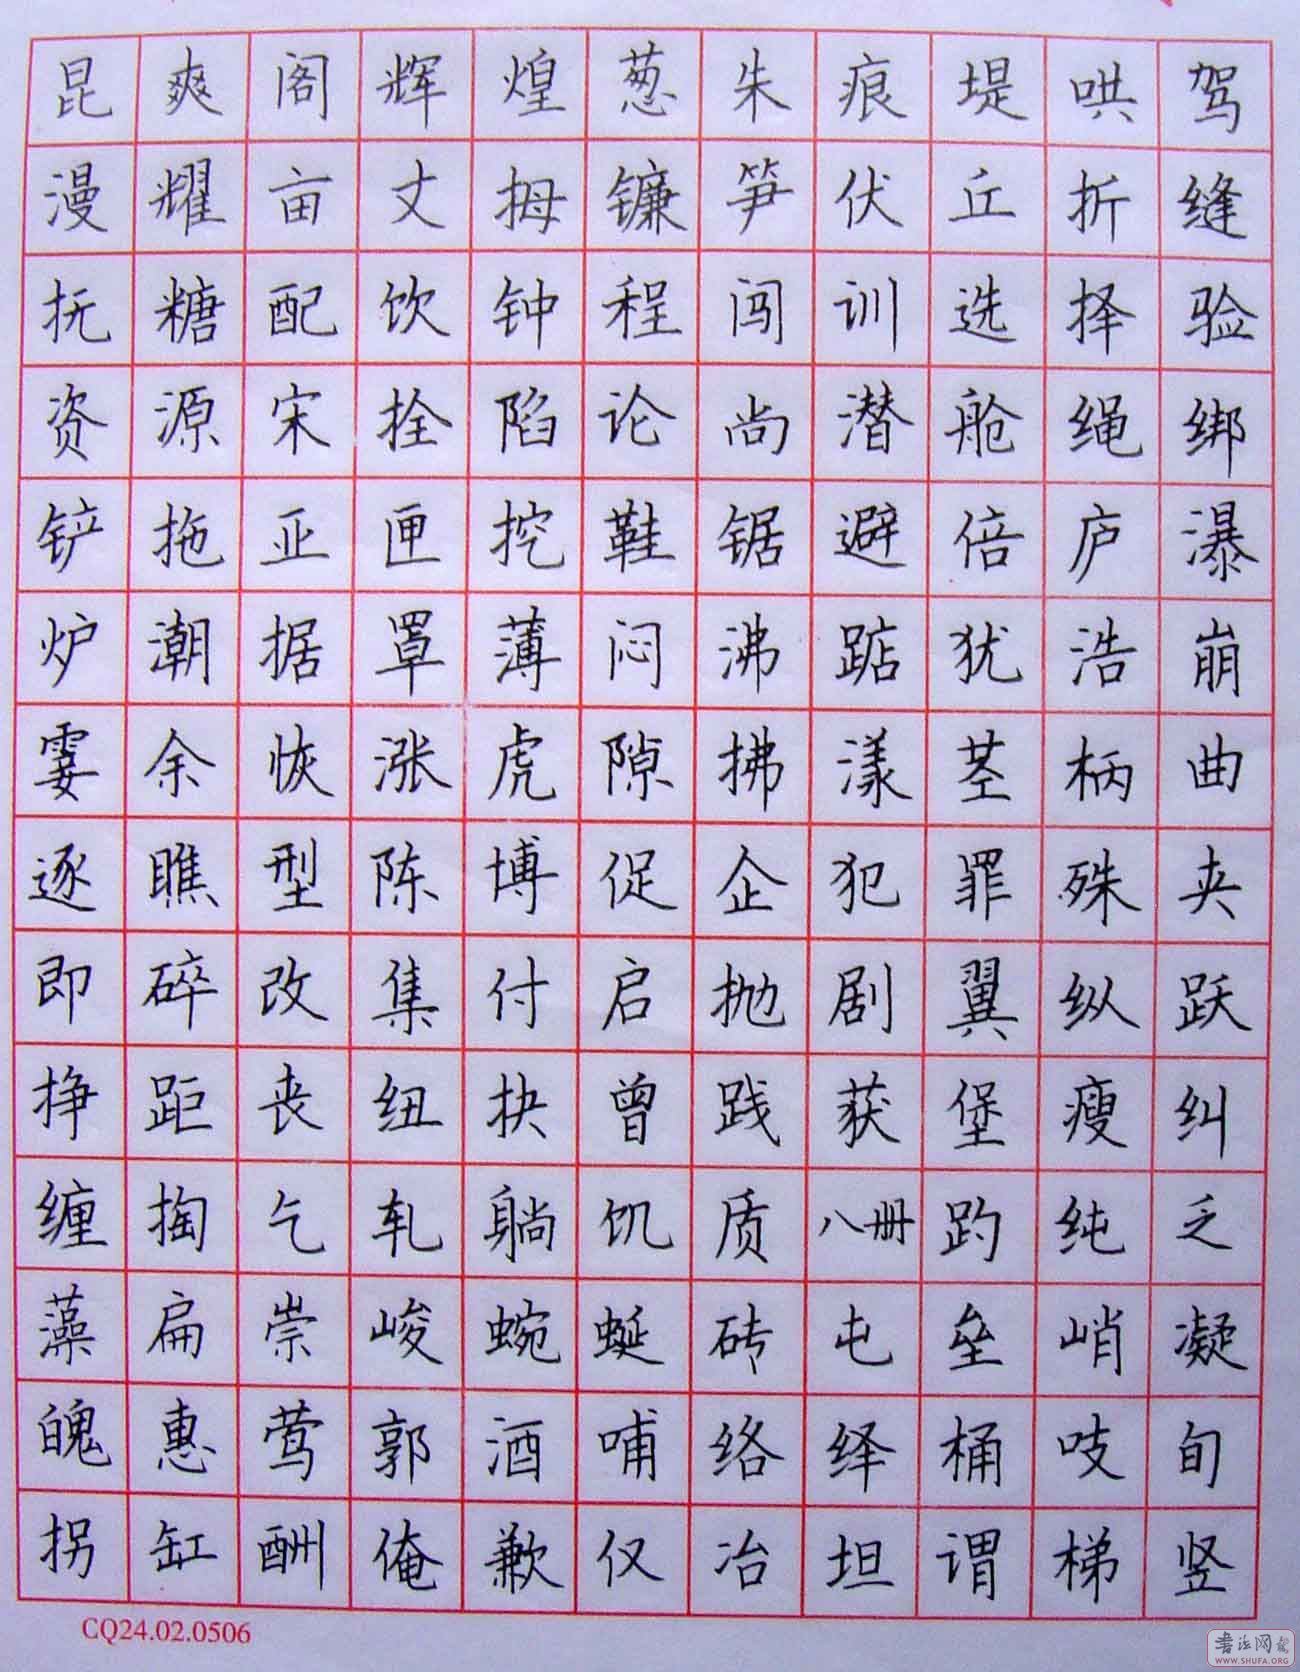 昆爽阁辉煌葱朱痕堤哄驾
漫耀亩丈拇镰笋伏丘折缝
抚糖配饮钟程闯训选择验
资源宋拴陷论尚潜舱绳绑
铲拖亚匣挖鞋锯避倍庐瀑
炉潮据罩薄闷沸踮犹浩崩
霎余恢涨虎隙拂漾茎柄曲
逐瞧型陈博促企犯罪殊夹
即碎改集付启抛剧翼纵跃
挣距丧纽抉曾践获堡瘦纠
缠掏乞轧躺饥质八册趵纯乏
藻扁崇峻蜿蜒砖屯垒峭凝
魄惠莺郭酒哺络绎桶吱旬
拐缸酬俺歉仅冶坦谓梯竖
CQ24.02.0506
书法网
WWW.SHUFA.ORG